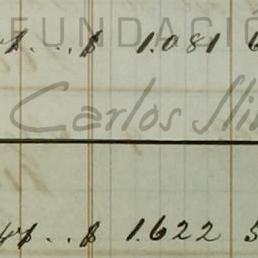 FUNDACIÓ
$ 1.081 6
Carlos Sli
$ 1.622 5